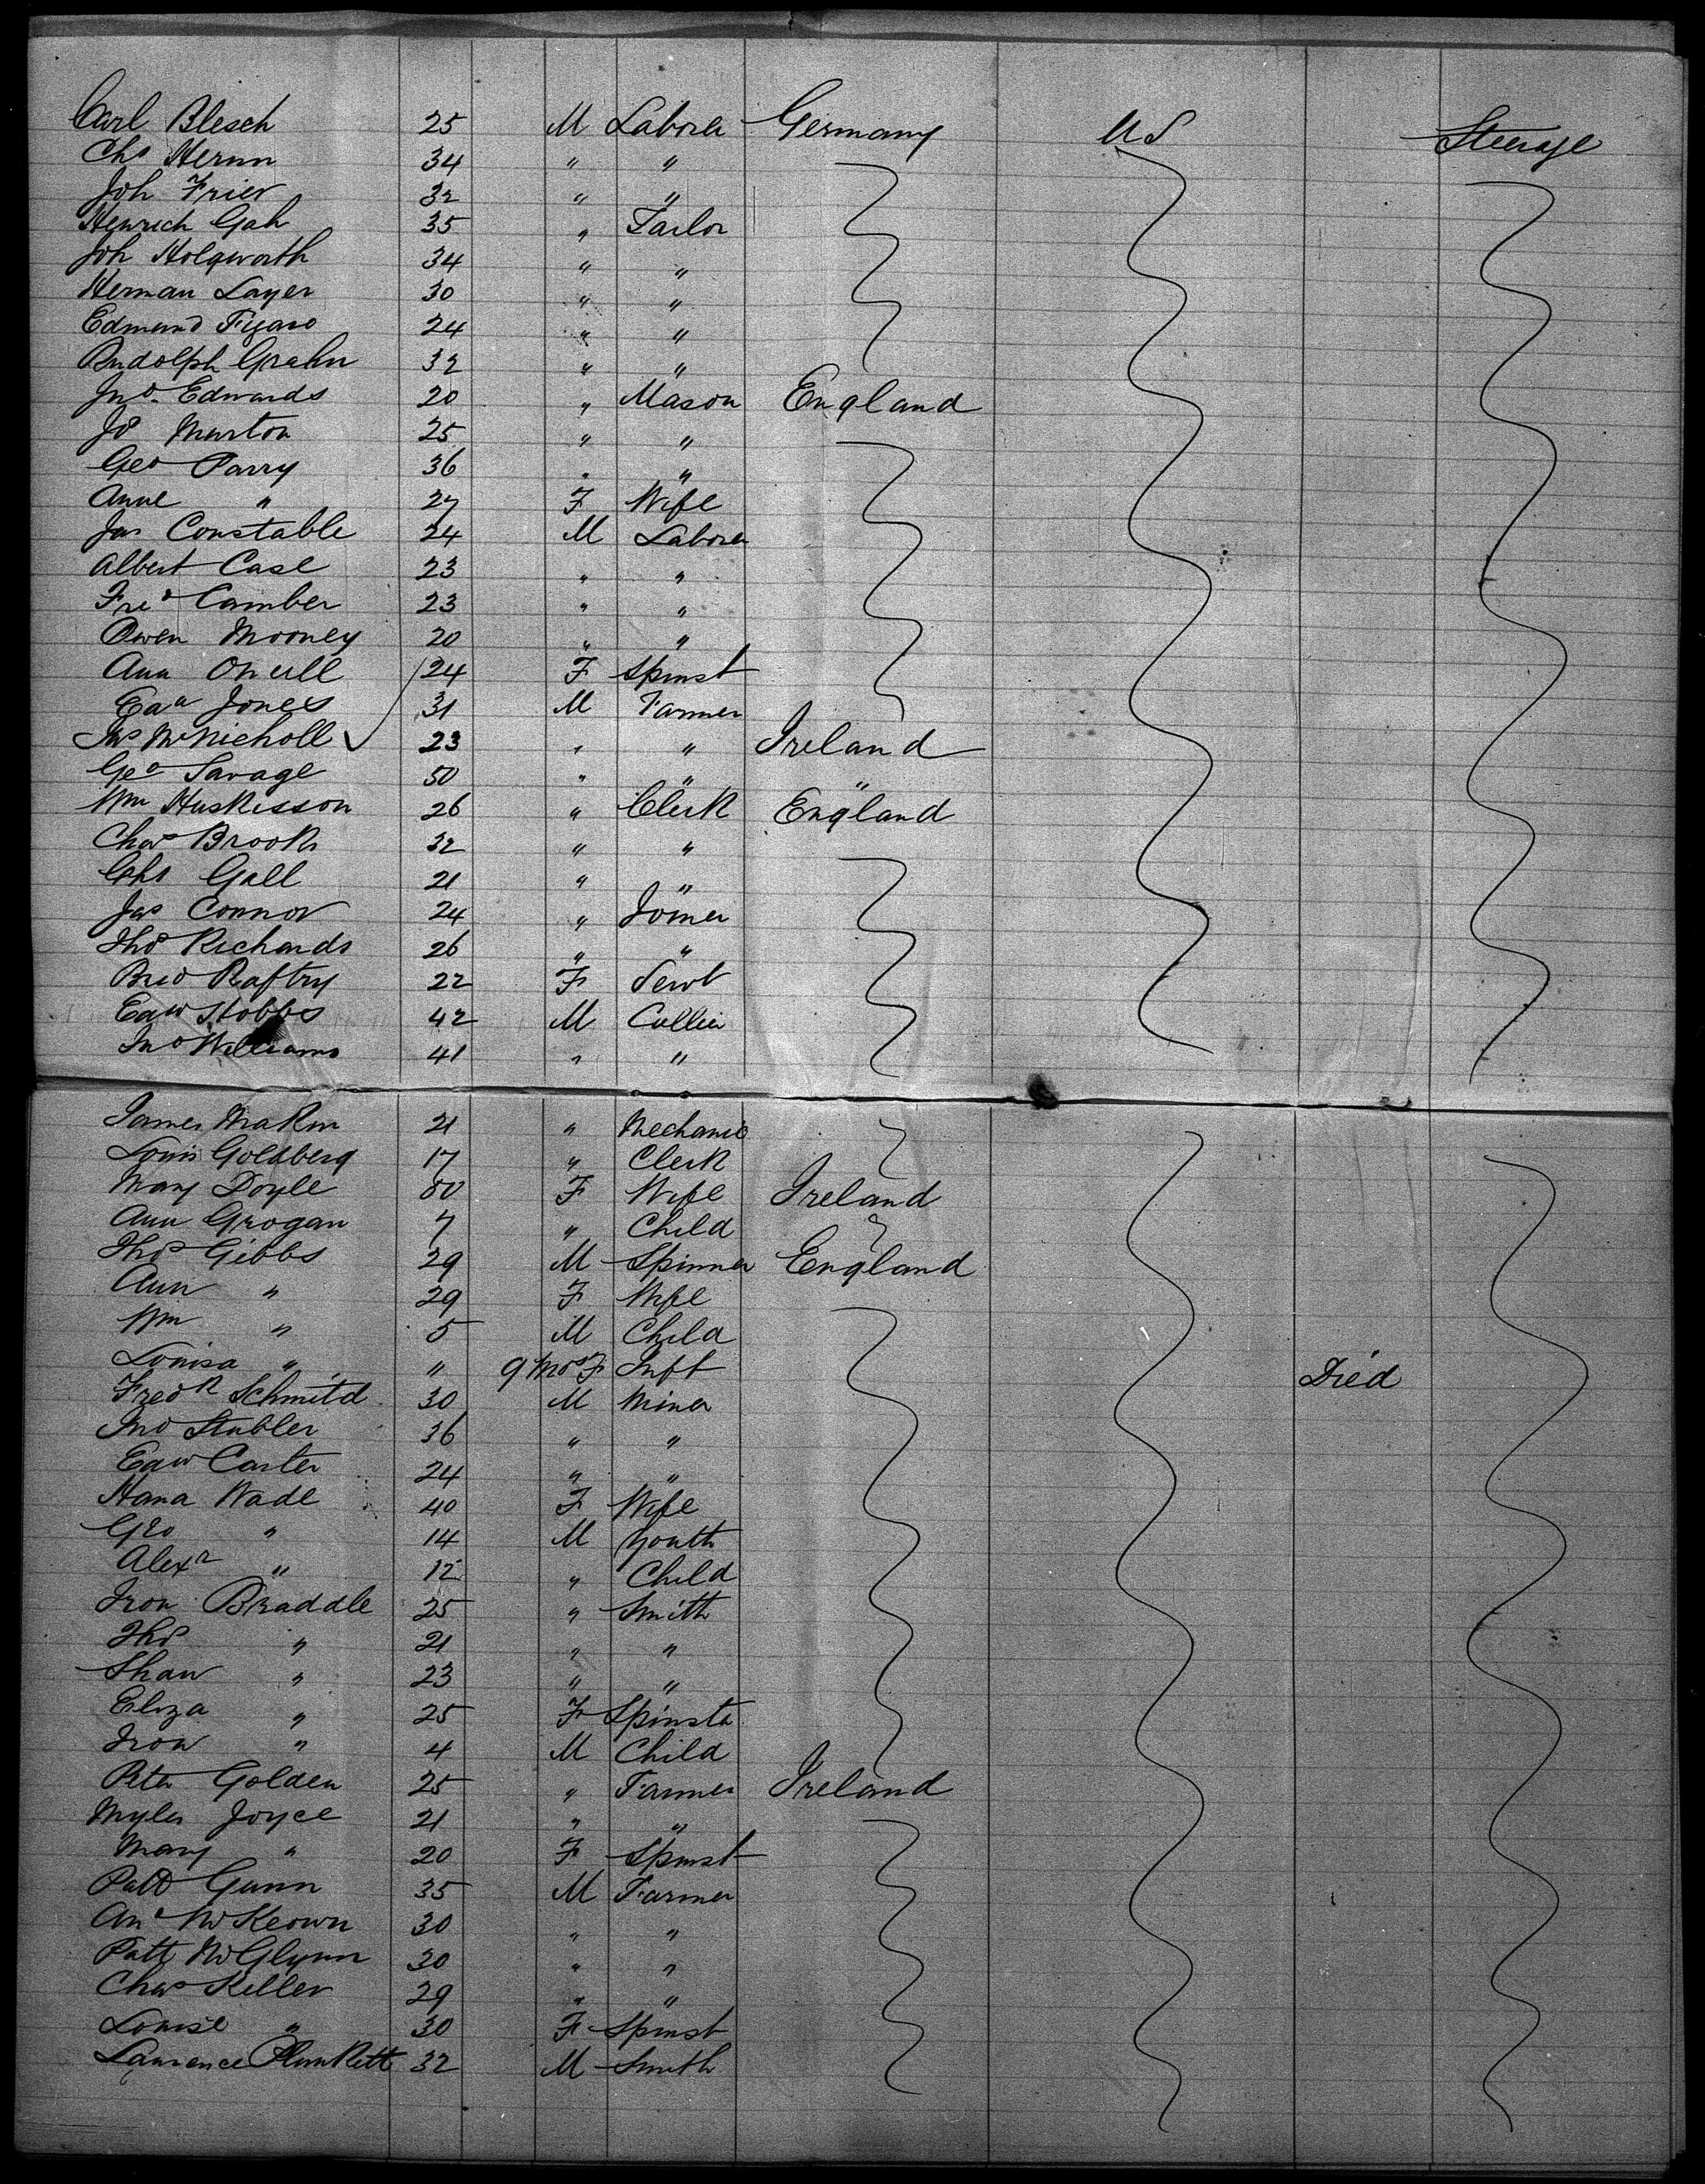 Carl Blesch 25 M Laborer Germany U S Steerage
Chs Hernn 34 " "
Joh Frier 32 " "
Henrich Gah 35 " Tailor
Joh Holqworth 34 " "
Herman Layer 30 " "
Edmund Figaro 24 " "
Rudolph Grahn 32 " "
Jno. Edwards 20 " Mason England
Jos Murton 25 " "
Geo Parry 36 " "
Anne " 27 F Wife
Jas Constable 24 M Laborer
Albert Case 23 " "
Fred Camber 23 " "
Owen Mooney 20 " "
Ann Oneill 24 F Spinst
Edd Jones 31 M Farmer
Jas McNicholl 23 " " Ireland
Geo Savage 50 " " "
Wm Huskisson 26 " Clerk England
Chas Brook 32 " "
Chs Gall 21 " "
Jas Connor 24 " Joiner
Thos Richards 26 " "
Brid Raftry 22 F Servt
Edw Hobbs 42 M Collier
Jno Williams 41 " "
James Makin 21 " Mechanic
Louis Goldberg 17 " Clerk
Mary Doyle F Wife Ireland
Ann Grogan 7 " Child
Thos Gibbs 29 M Spinner England
Ann " 29 F Wife
Wm " 5 M Child
Louisa " " 9 Mos F Inft Died
Fredk Schmitd 30 M Miner
Jno Stubler 36 " "
Edw Carter 24 " "
Hana Wade 40 F Wife
Geo " 14 M Youth
Alexr " 12 " Child
Iron Braddle 25 " Smith
Thos " 21 " "
Shaw " 23 " "
Eliza " 25 F Spinstr
Iron " 4 M Child
Peter Golden 25 " Farmer Ireland
Myles Joyce 21 " "
Mary " 20 F Spinst
Patt Gunn 35 M Farmer
And McKeown 30 " "
Patt McGlynn 30 " "
Chas Keller 29 " "
Louise " 30 F Spinst
Lawrence Plunkett 32 M Smith